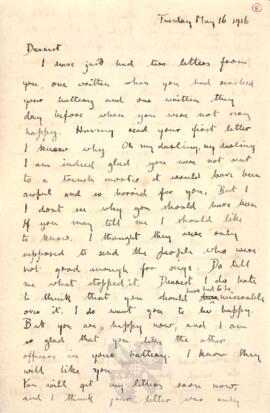 8
Tuesday May 16 1916
Dearest
I have just had two letters from
you, one written when you had reached
your battery and one written the
day before when you were not very
happy. Having read your first letter
I know why. Oh my darling, my darling
I am indeed glad you were not sent
to a trench mortar it would have been
awful and so horrid for you. But I
I dont see why you should have been
If you may tell me I should like
to know. I thought they were only
supposed to send the people who were
not good enough for guns. Do tell
me what stopped it. Dearest I do hate
to think that you should have had to be miserable
over it. I do want you to be happy.
But you are happy now, and I am
so glad that you like the other
officers in your battery. I know they
will like you.
You will get my letters soon now,
and I think your letter was only